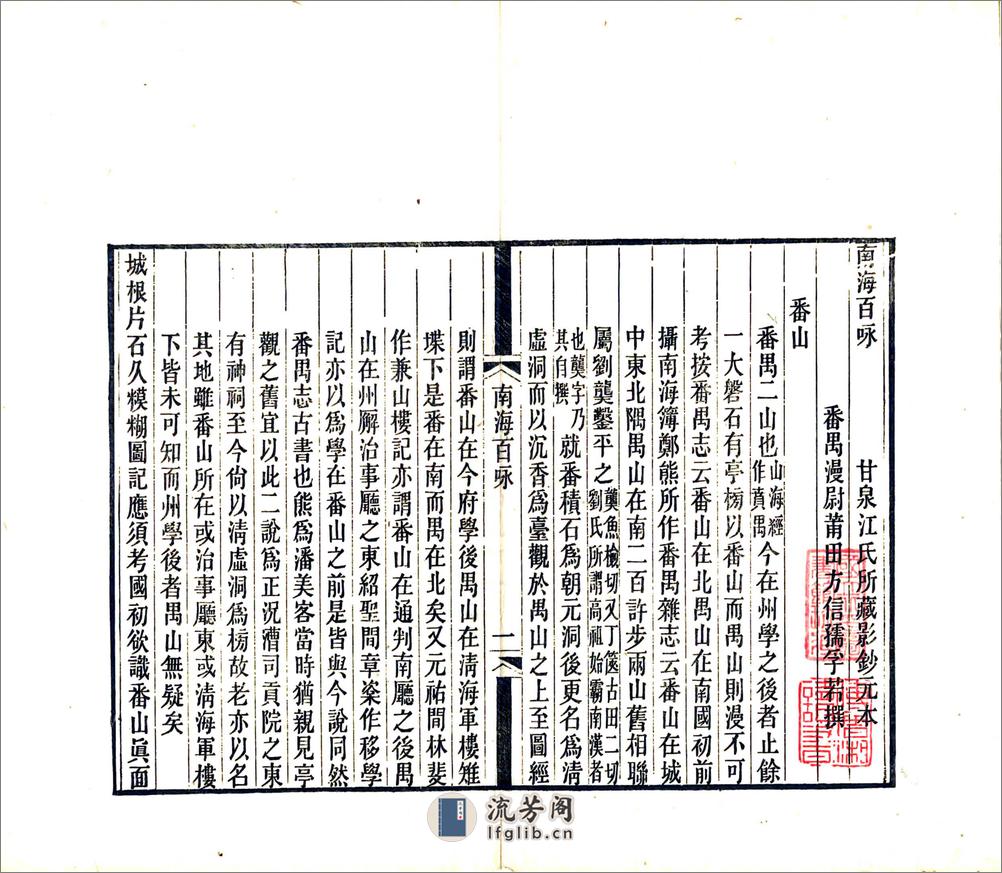 南海百咏 甘泉江氏所藏影鈔元本
番禺漫尉莆田方信孺孚若撰
番山
番禺二山也山海經作賁禺今在州學之後者止餘
一大磐石有亭榜以番山而禺山則漫不可
考按番禺志云番山在北禺山在南國初前
攝南海簿鄭熊所作番禺雜志云番山在城
中東北隅禺山在南二百許步兩山舊相聯
屬劉龑鑿平之龑魚檢切又丁篋古田二切劉氏所謂高祖始霸南漢者
也龑字乃其自撰就番積石爲朝元洞後更名爲清
虛洞而以沉香爲臺觀於禺山之上至圖經
南海百咏
二
則謂番山在今府學後禺山在清海軍樓雉
堞下是番在南而禺在北矣又元祐間林裴
作兼山樓記亦謂番山在通判南廳之後禺
山在州廨治事廳之東紹聖間章楶作移學
記亦以爲學在番山之前是皆與今說同然
番禺志古書也熊爲潘美客當時猶親見亭
觀之舊宜以此二說爲正況漕司貢院之東
有神祠至今尙以清虛洞爲榜故老亦以名
其地雖番山所在或治事廳東或清海軍樓
下皆未可知而州學後者禺山無疑矣
城根片石久糢糊圖記應須考國初欲識番山眞面
流芳阁
lfglib.cn